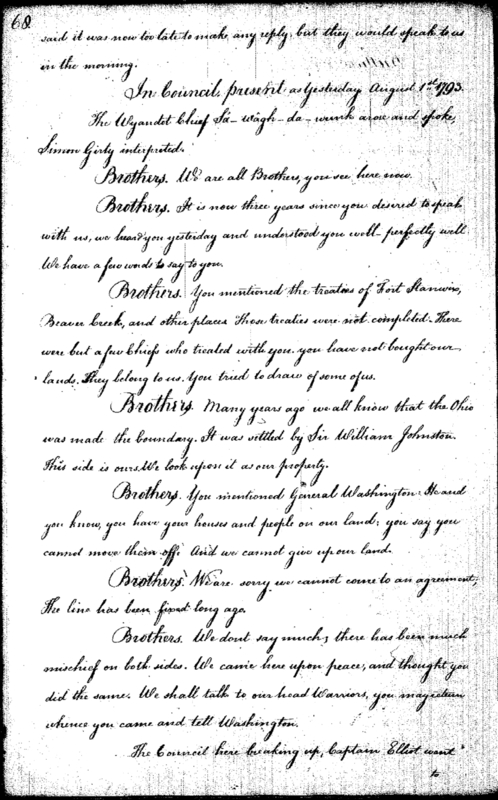 68
said it was now too late to make any reply, but they would speak to us
in the morning.
In Council, present as Yesterday August 1st 1793.
The Wyandot Chief Sa-wagh-da-wunk arose and spoke,
Simon Girty interpreted.
Brothers. We are all Brothers, you see here now.
Brothers. It is now three years since you desired to speak
with us, we heard you yesterday and understood you well- perfectly well
We have a few words to say to you.
Brothers. You mentioned the treaties of Fort Stanwix,
Beaver Creek, and other places Those treaties were not completed. There
were but a few Chiefs who treated with you. you have not bought our
lands. They belong to us. You tried to draw of some of us.
Brothers. Many years ago we all know that the Ohio
was made the boundary. It was settled by Sir William Johnston.
This side is ours. We look upon it as our property.
Brothers. You mentioned General Washington. He and
you know, you have your houses and people on our land; you say you
cannot move them off: And we cannot give up our land.
Brothers. We are sorry we cannot come to an agreement;
The line has been fixed long ago.
Brothers. We dont say much, there has been much
mischief on both sides. We came here upon peace, and thought you
did the same. We shall talk to our head Warriors, you may return
whence you came and tell Washington.
The Council here breaking up, Captain Elliot went
to